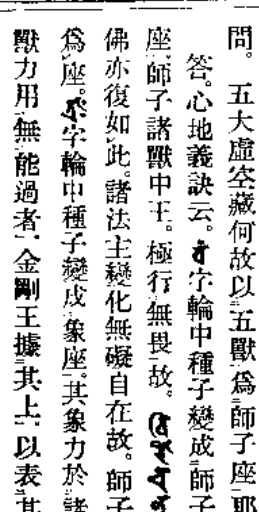 問。五大虛空藏何故以五獸爲師子座耶
答。心地義訣云。字輪中種子變成師子
座。師子諸獸中王。極行無畏故。
佛亦復如此。諸法主變化無礙自在故。師子
爲座。字輪中種子變成象座。其象力於諸
獸力用無能過者。金剛王據其上。以表其